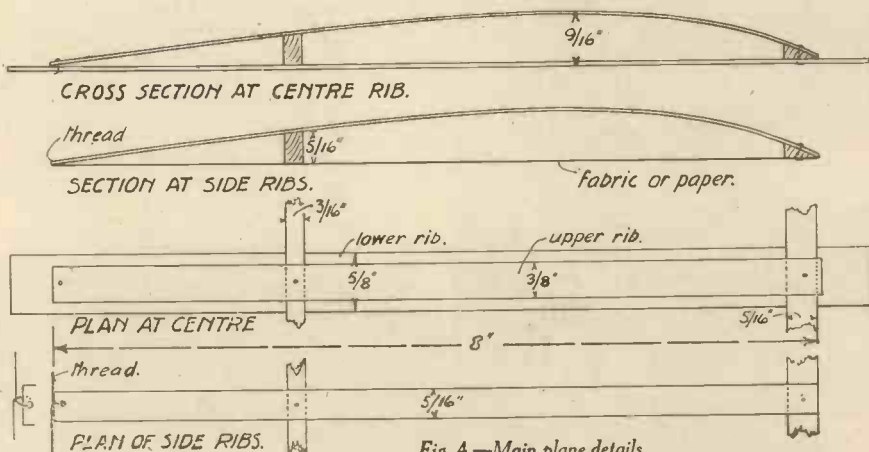 9/16"
CROSS SECTION AT CENTRE RIB.
thread
5/16"
SECTION AT SIDE RIBS.
fabric or paper.
3/16"
lower rib.
upper rib.
5/8"
3/8"
5/16"
PLAN AT CENTRE
8"
thread.
5/16"
PLAN OF SIDE RIBS.
Fig. 4.—Main plane details